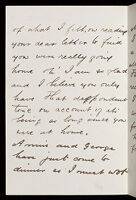 of what I felt on reading
your dear letter to find
you were really going
home oh! I am so glad
and I believe you only
have that despondent
tone on account of its
being so long since you
were at home.
Annie and George
have just come to
dinner so I must not